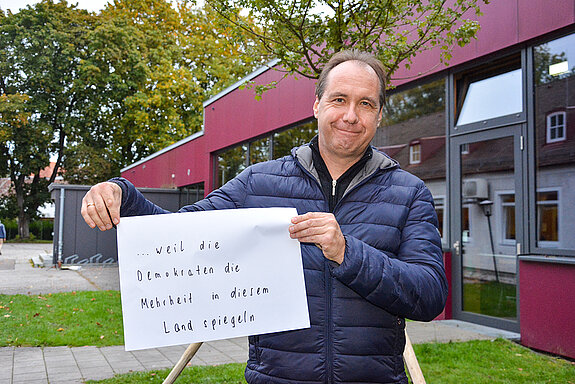 ... weil die
Demokraten die
Mehrheit in diesem
Land spiegeln